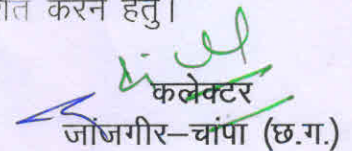 करने हेतु।
कलेक्टर
जांजगीर–चांपा (छ.ग.)